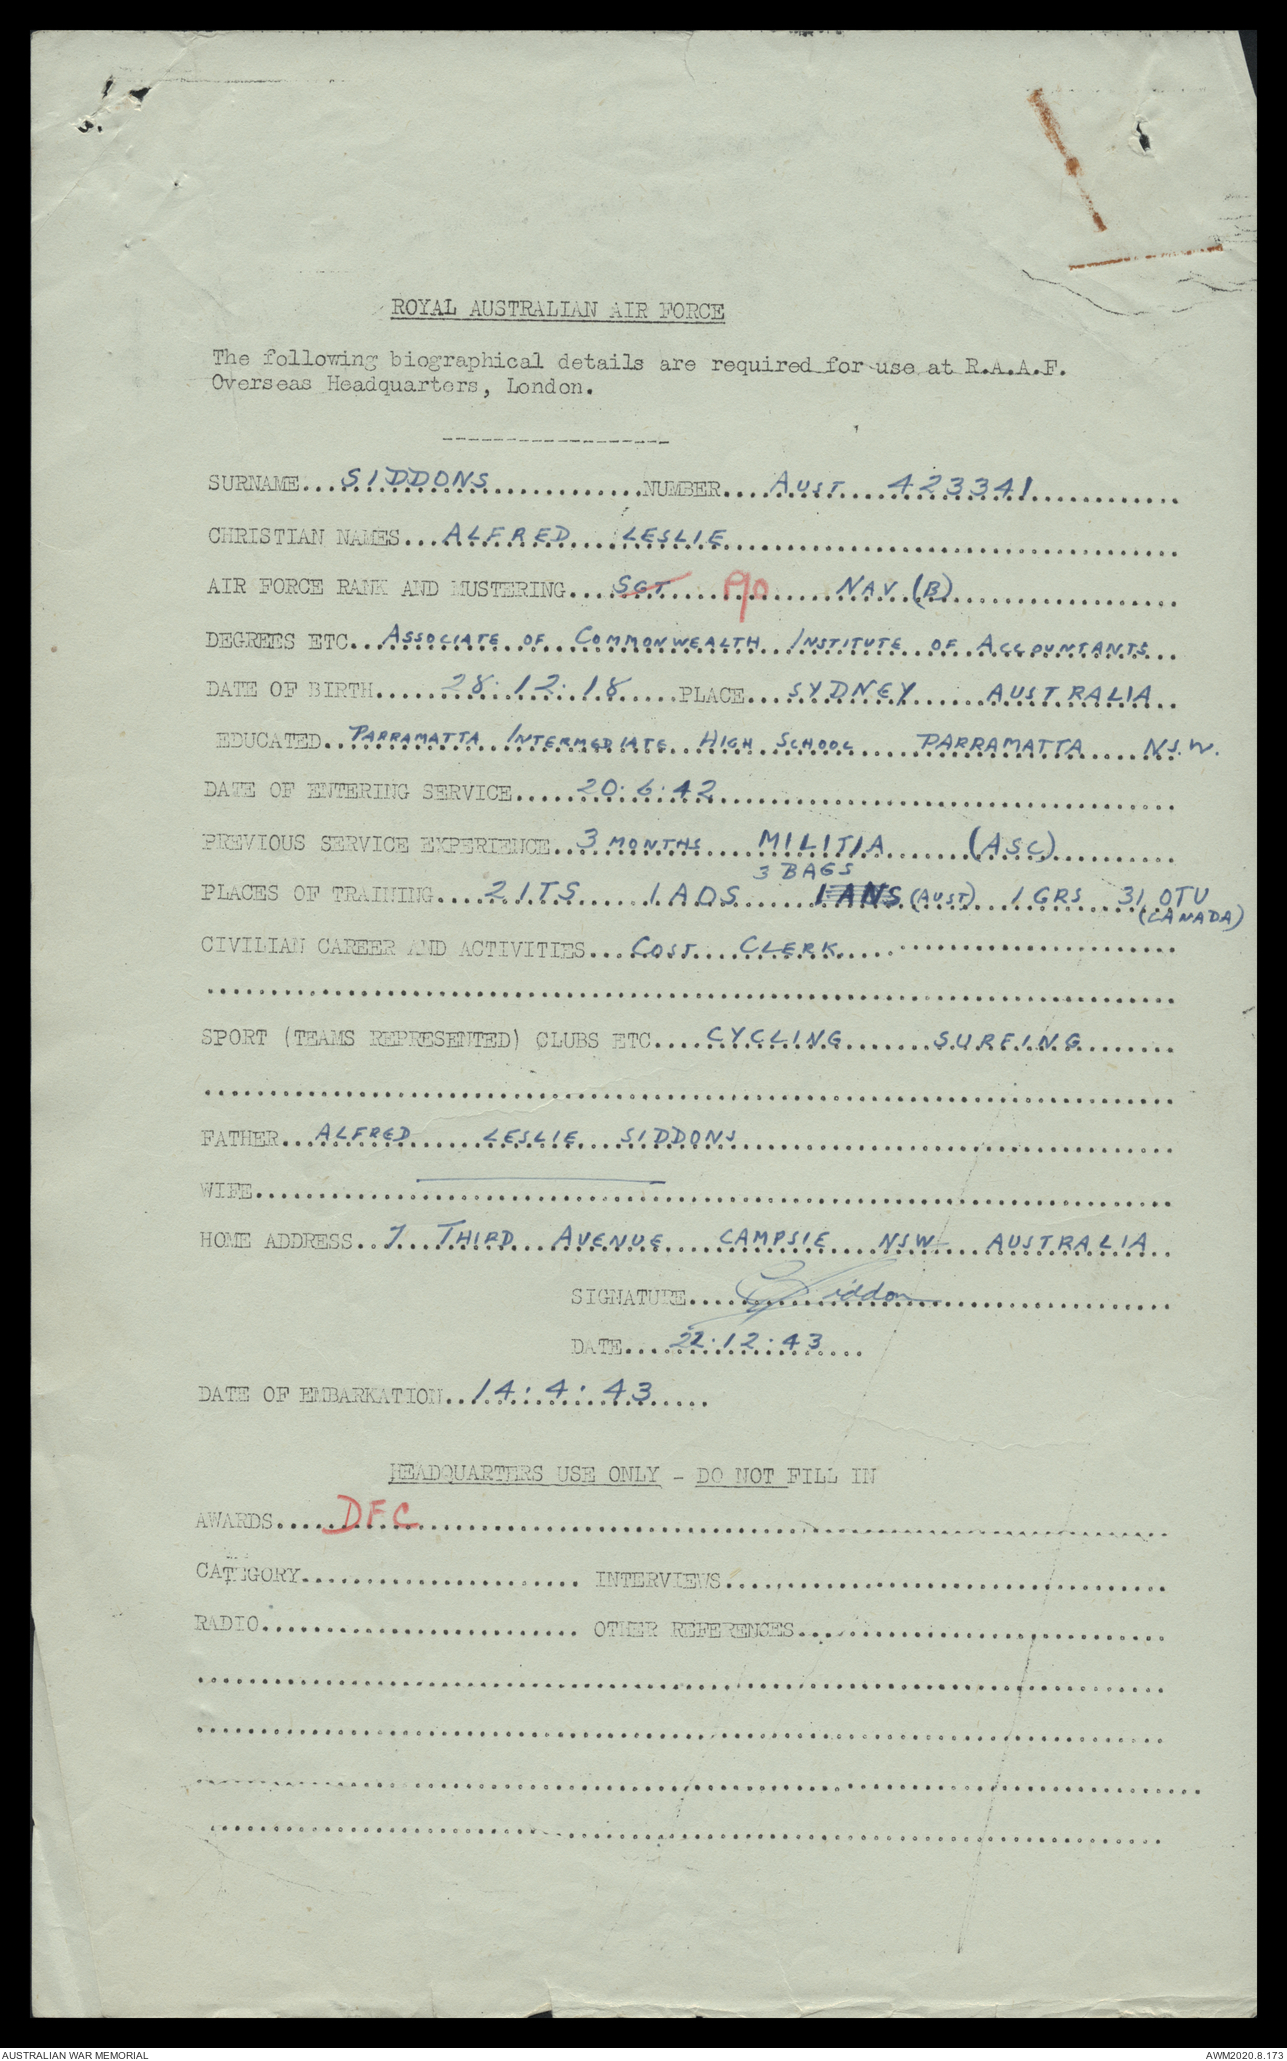 ROYAL AUSTRALIAN AIR FORCE
The following biographical details are required for use at R.A.A.F.
Overseas Headquarters, London.
-----------------
SURNAME...SIDDONS...NUMBER...AUST 423341...
CHRISTIAN NAMES...ALFRED LESLIE...
AIR FORCE RANK AND MUSTERING...SGT P/O NAV (B)...
DEGREES ETC...ASSOCIATE OF COMMONWEALTH INSTITUTE OF ACCOUNTANTS...
DATE OF BIRTH...28.12.18...PLACE...SYDNEY AUSTRALIA...
EDUCATED...PARRAMATTA INTERMEDIATE HIGH SCHOOL PARRAMATTA N.S.W.
DATE OF ENTERING SERVICE...20.6.42...
PREVIOUS SERVICE EXPERIENCE...3 MONTHS MILITIA (ASC)...
3 BAGS
PLACES OF TRAINING...2 ITS 1 ADS 1 ANS (AUST) 1 GRS 31 OTU
(CANADA)
CIVILIAN CAREER AND ACTIVITIES...COST CLERK...
SPORT (TEAMS REPRESENTED) CLUBS ETC...CYCLING SURFING...
FATHER...ALFRED LESLIE SIDDONS...
WIFE...
HOME ADDRESS...7 THIRD AVENUE CAMPSIE NSW AUSTRALIA...
SIGNATURE...Siddon...
DATE...22.12.43...
DATE OF EMBARKATION...14.4.43...
HEADQUARTERS USE ONLY - DO NOT FILL IN
AWARDS...DFC...
CATEGORY... INTERVIEWS...
RADIO... OTHER REFERENCES...
AUSTRALIAN WAR MEMORIAL AWM2020.8.173